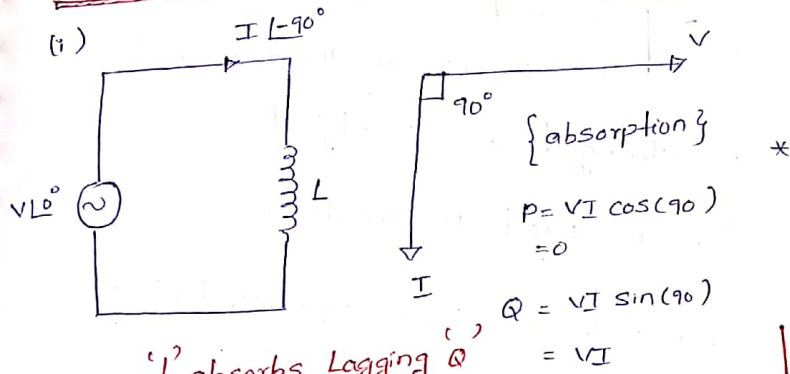 (i)
I ∠-90°
V∠0°
L
V
90°
{absorption}
*
P = VI cos(90)
= 0
I
Q = VI sin(90)
= VI
'L' absorbs Lagging 'Q'